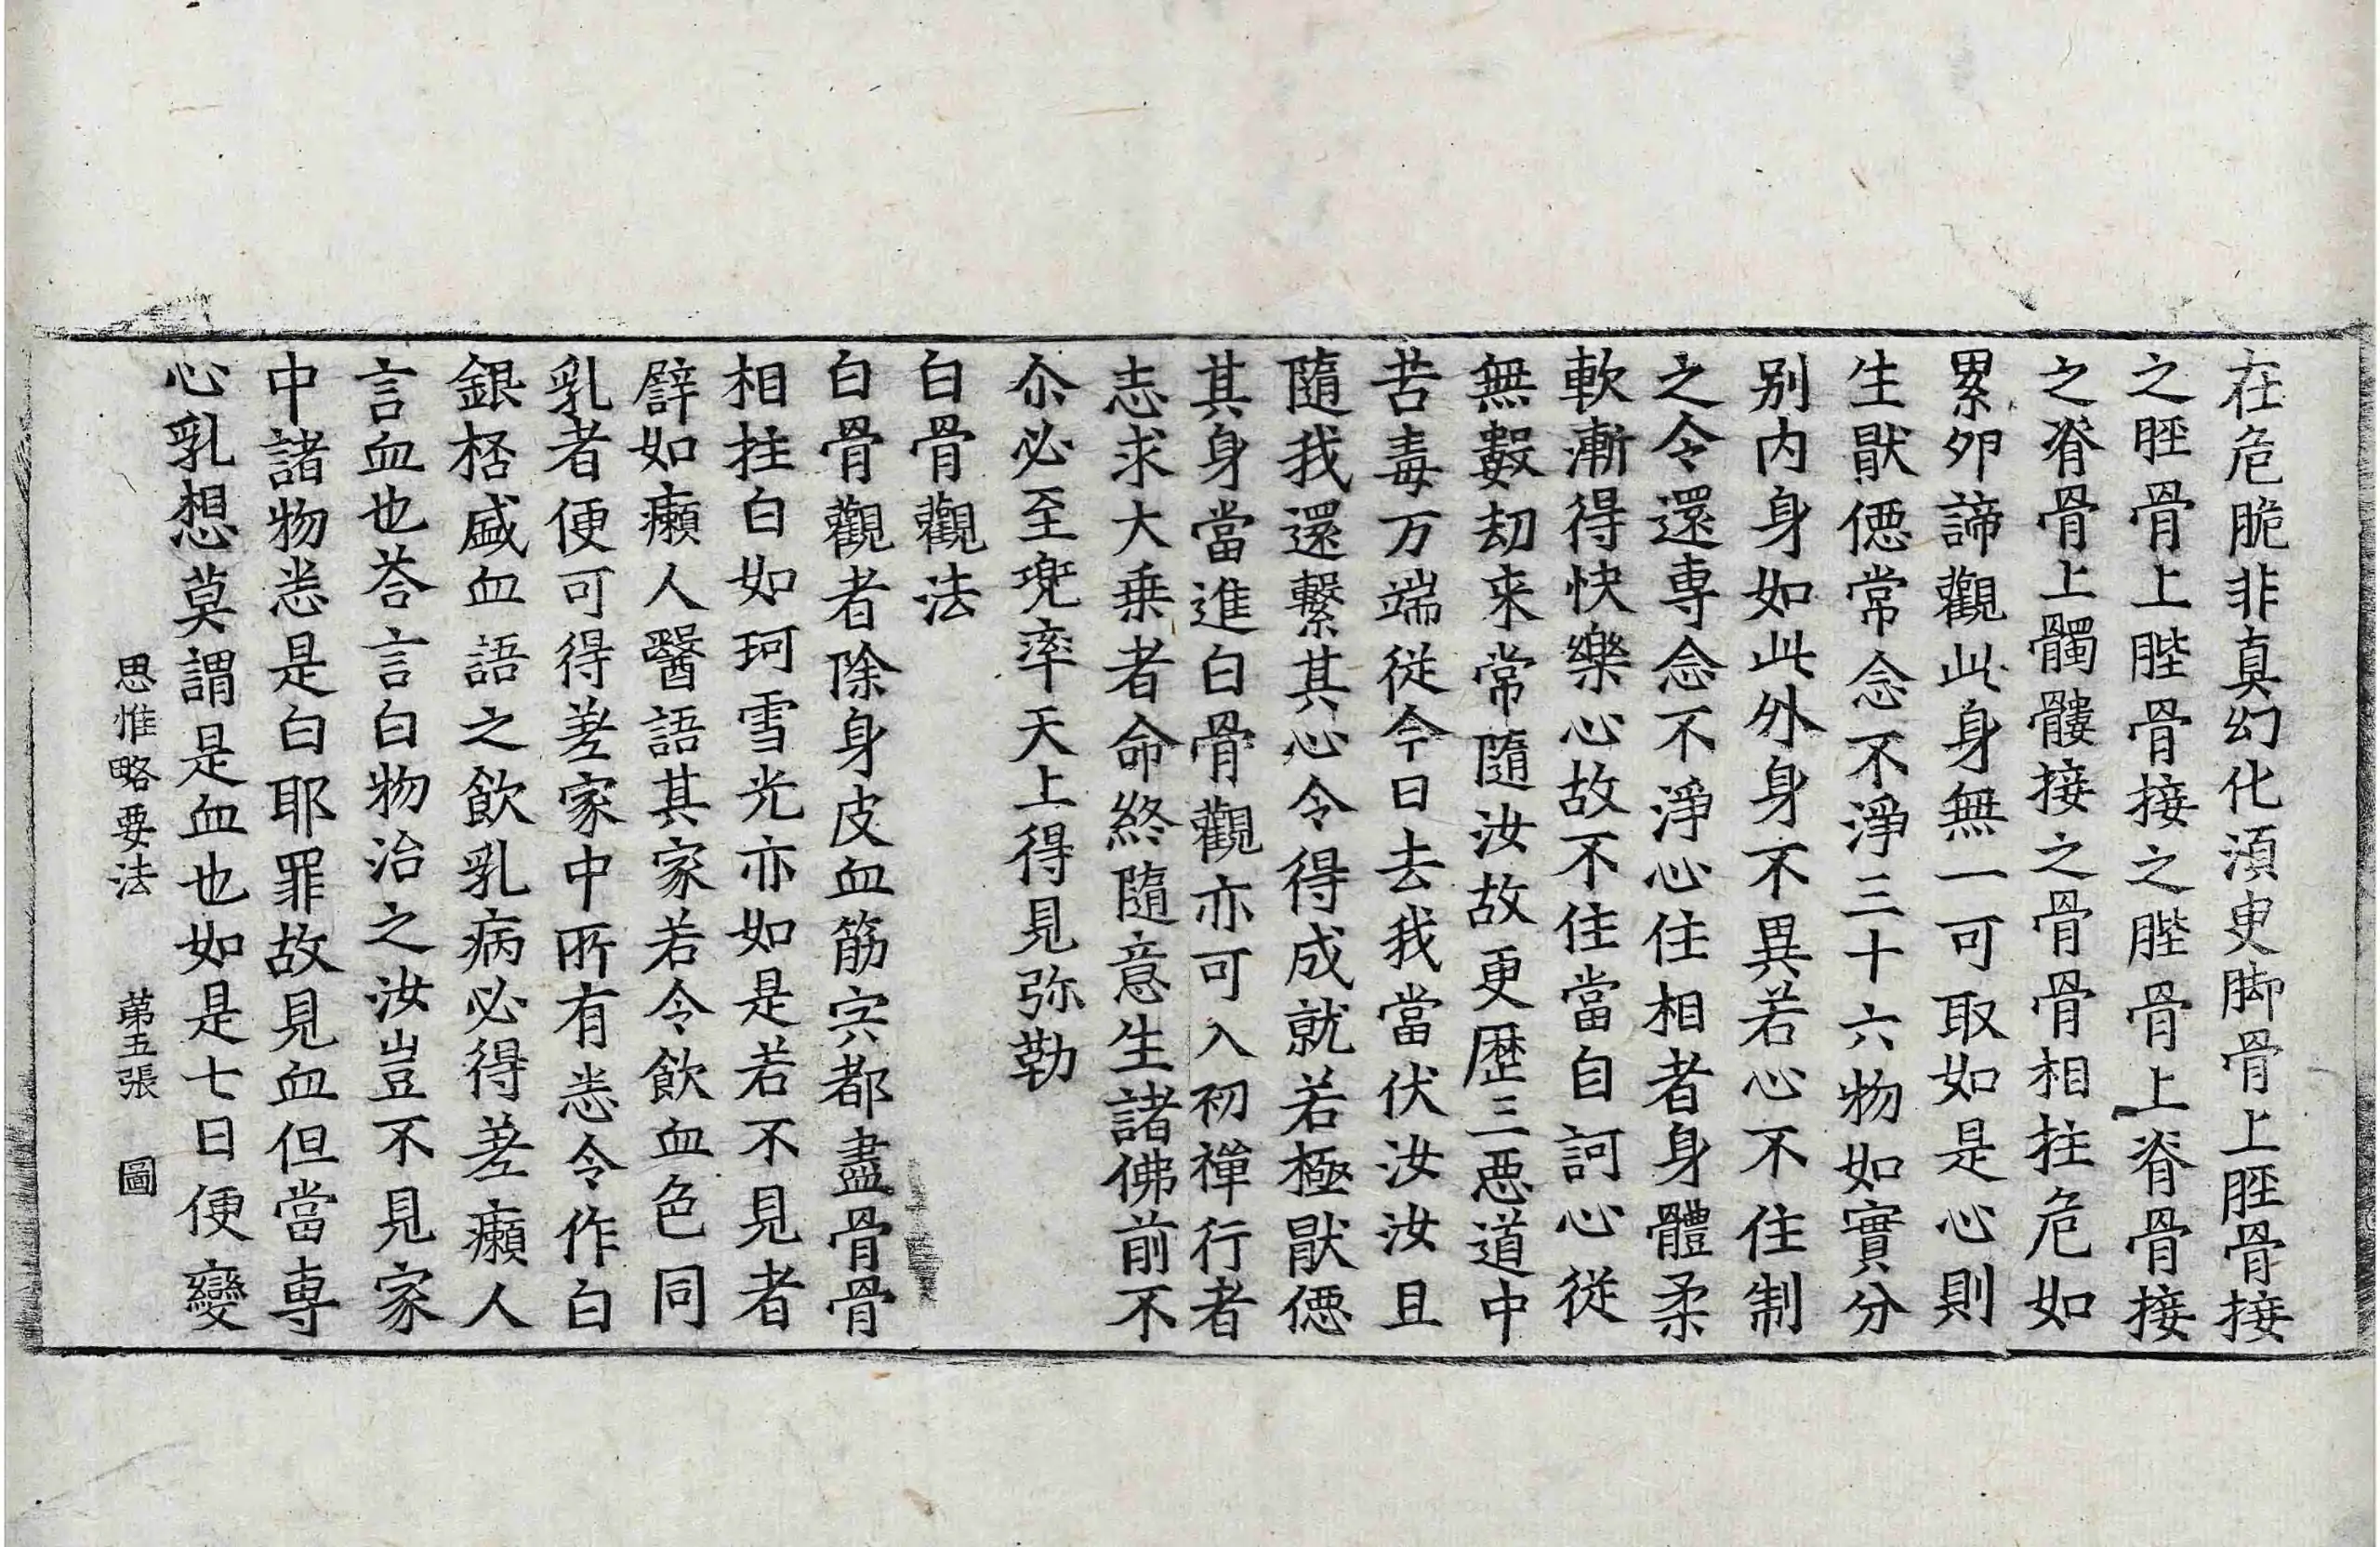 在危脆非真幻化湏臾脚骨上脛骨接
之脛骨上䏶骨接之䏶骨上脊骨接
之脊骨上髑髏接之骨骨相拄危如
累夘諦觀此身無一可取如是心則
生猒㥶常念不淨三十六物如實分
别内身如此外身不異若心不住制
之令還専念不淨心住相者身體柔
軟漸得快樂心故不住當自訶心従
無數劫来常隨汝故更歴三惡道中
苦毒万端従今日去我當伏汝汝且
隨我還繫其心令得成就若極猒㥶
其身當進白骨觀亦可入初禪行者
志求大乗者命終隨意生諸佛前不
尒必至兜率天上得見弥勒
白骨觀法
白骨觀者除身皮血筋宍都盡骨骨
相拄白如珂雪光亦如是若不見者
譬如癩人醫語其家若令飲血色同
乳者便可得差家中所有悉令作白
銀桮盛血語之飲乳病必得差癩人
言血也荅言白物治之汝豈不見家
中諸物悉是白耶罪故見血但當専
心乳想莫謂是血也如是七日便變
思惟略要法 苐五張 圖